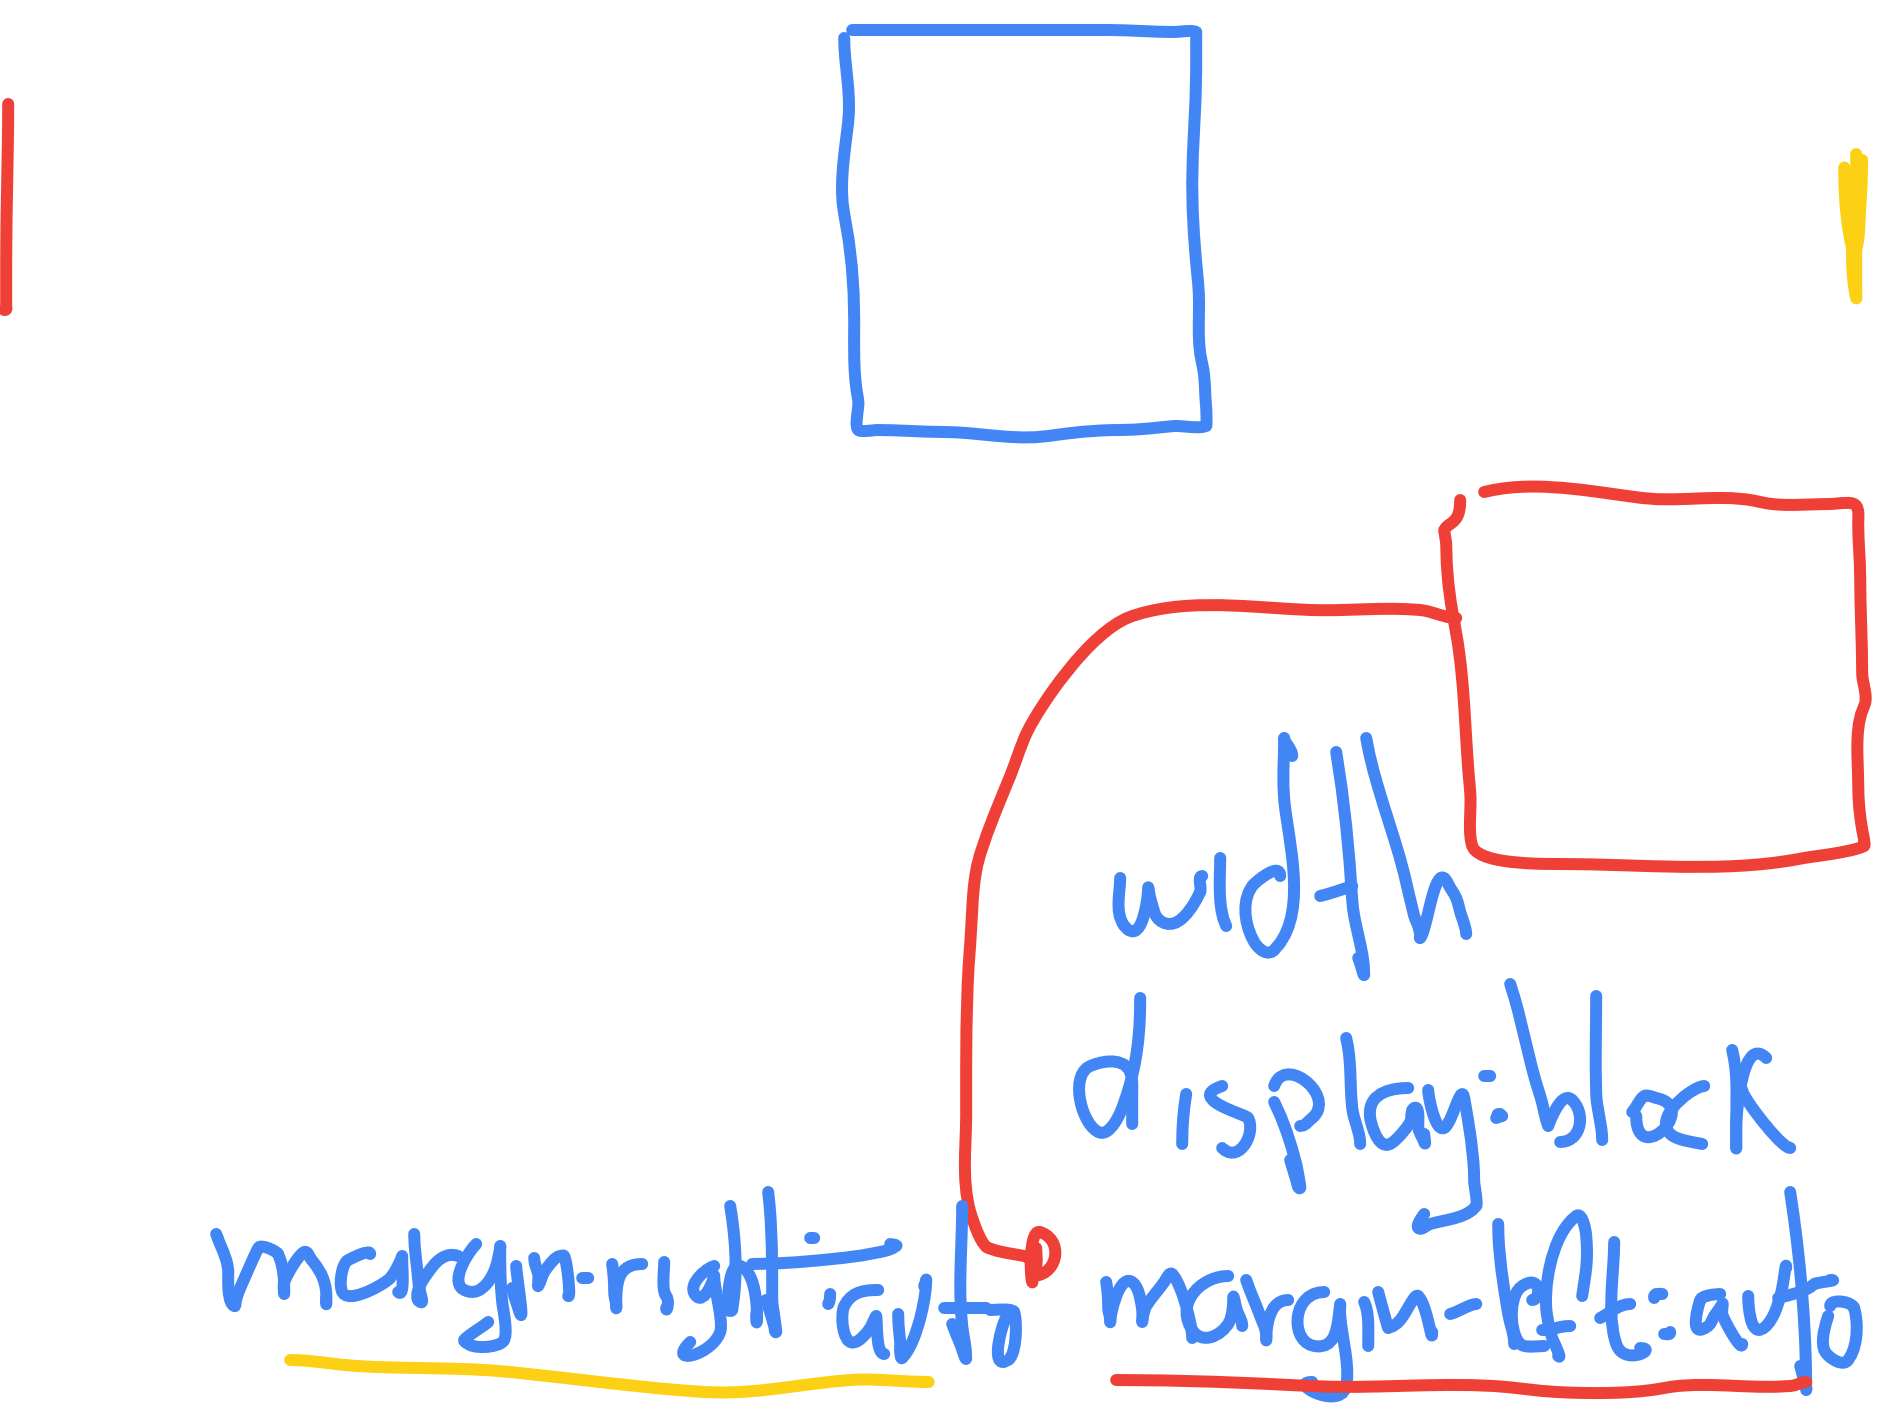 width
display: block
margin-right: auto
margin-left: auto